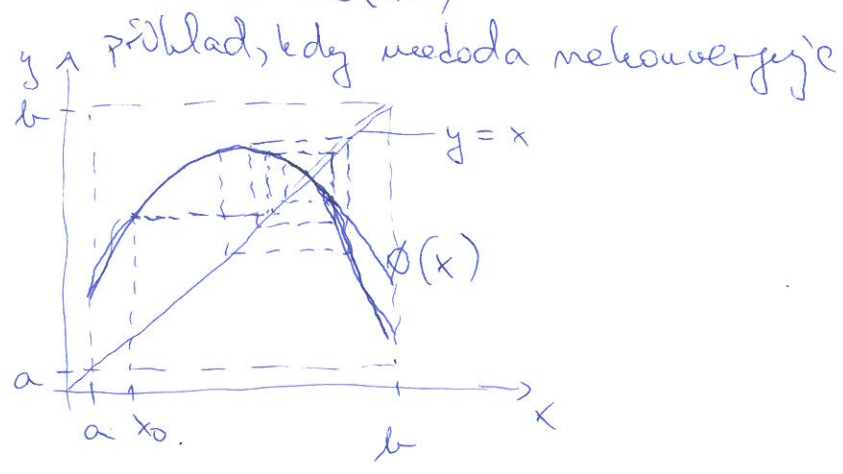 příklad, kdy metoda nekonverguje
y
b
y = x
φ(x)
a
a x₀.
b
x